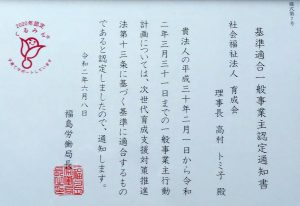 様式第7号
基準適合一般事業主認定通知書
社会福祉法人　育成会
理事長　髙村　トミ子　殿
貴法人の平成三十年二月一日から令和
二年三月三十一日までの一般事業主行動
計画については、次世代育成支援対策推進
法第十三条に基づく基準に適合するもの
であると認定しましたので、通知します。
令和二年六月八日
福島労働局長
2020年認定
くるみん
子育てサポートしています